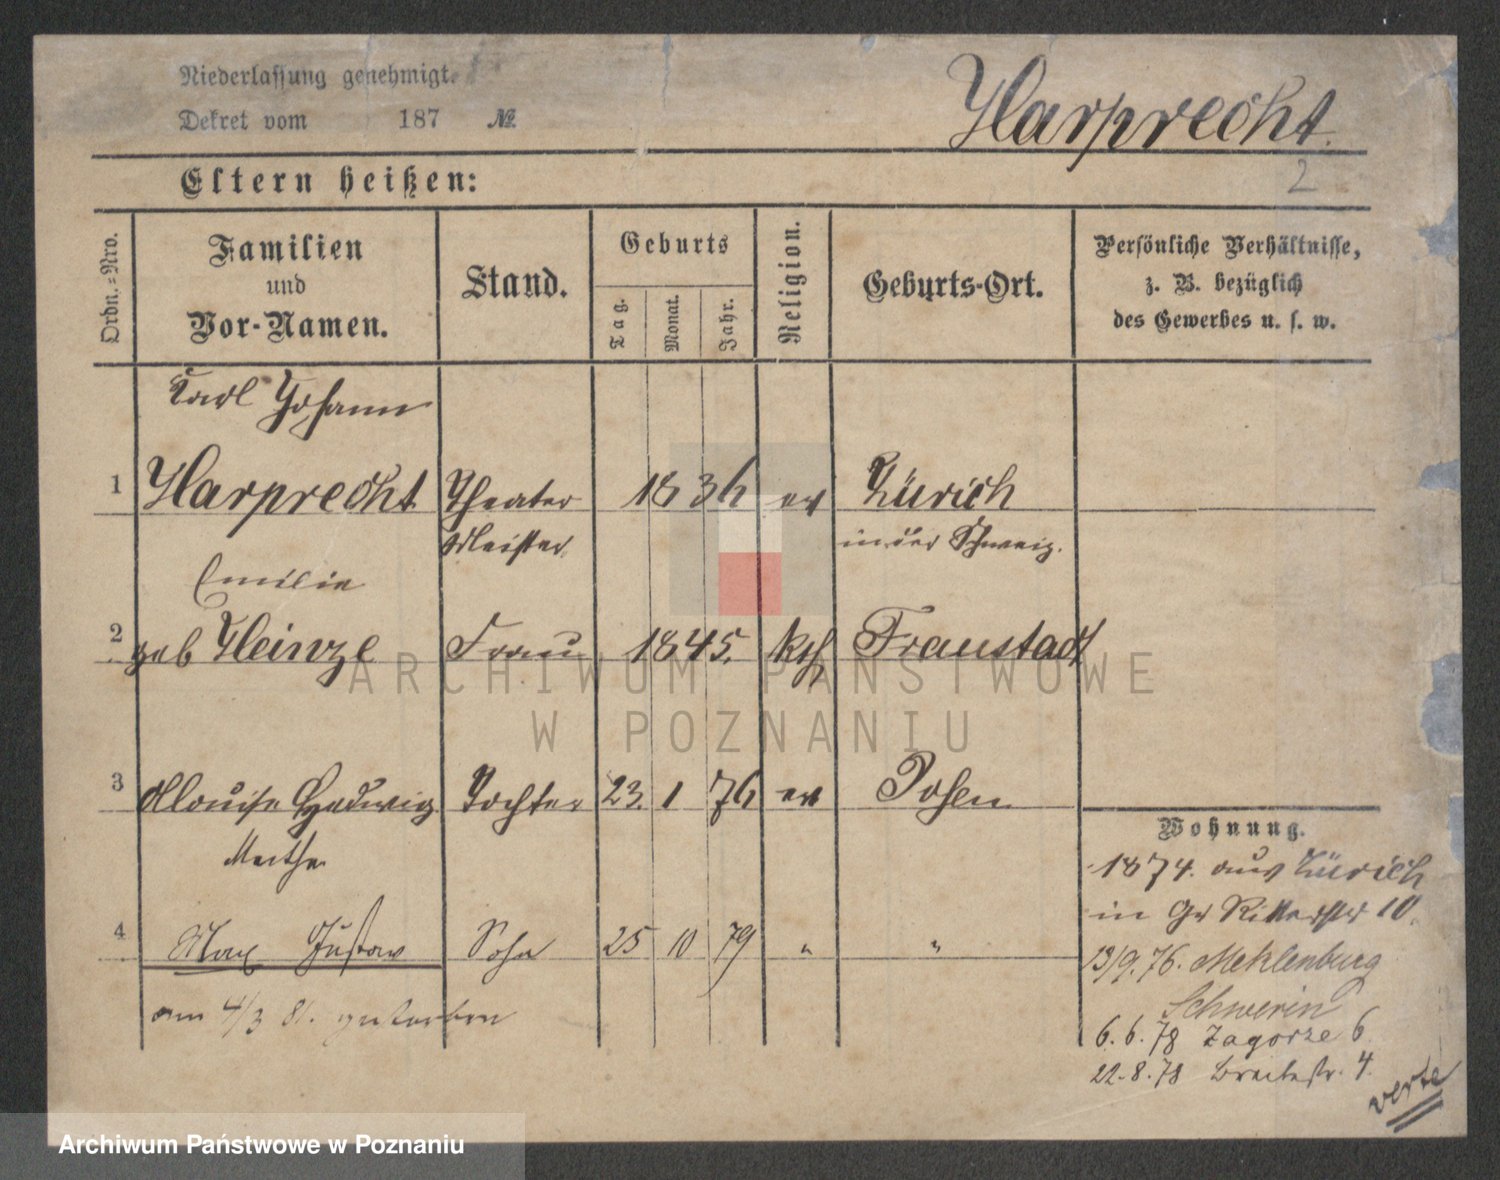 Niederlassung genehmigt.
Dekret vom 187 №
Harprecht.
2
Eltern heißen:
Ordn.-Nro.
Familien und Vor-Namen.
Stand.
Geburts
Tag.
Monat.
Jahr.
Religion.
Geburts-Ort.
Persönliche Verhältnisse,
z. B. bezüglich
des Gewerbes u. s. w.
Karl Johann
1 Harprecht Theater 1836 ev Zürich
Meister in der Schweiz.
Emilie
2 geb Heinze Frau 1845. kth Fraustadt
ARCHIWUM PAŃSTWOWE
W POZNANIU
3 Louise Hedwig Tochter 23. 1 76 ev Posen
Martha
Wohnung.
1874. aus Zürich
in Gr Ritterstr 10.
4 Max Gustav Sohn 25 10 79 " "
13/9. 76. Meklenburg
Schwerin
am 4/3 81. gestorben
6. 6. 78 Zagorze 6
22. 8. 78 Breitestr. 4.
verte
Archiwum Państwowe w Poznaniu